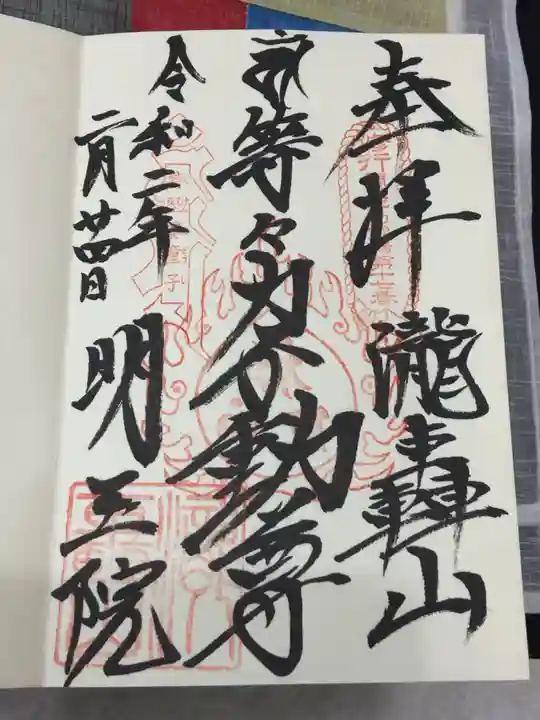 奉拝
瀧轟山
等々力不動尊
令和二年
二月廿四日
明王院